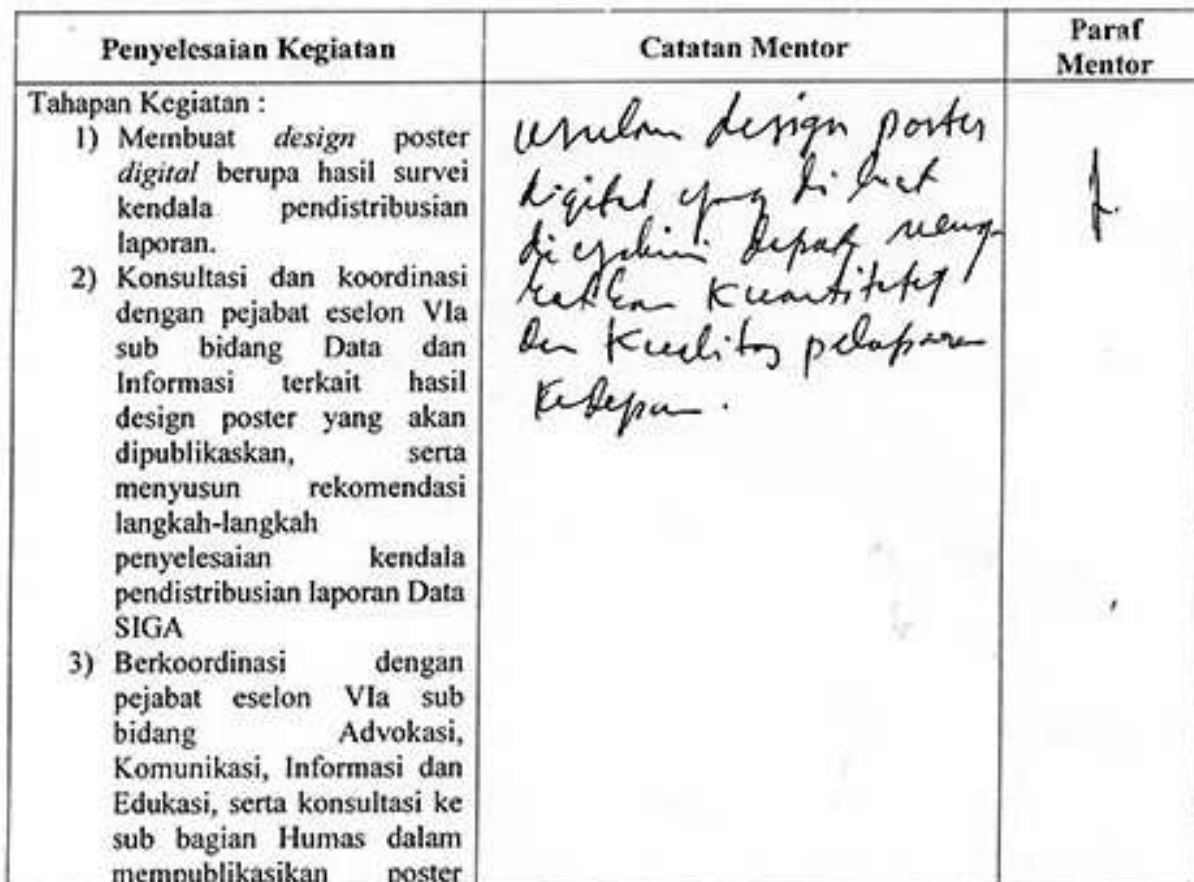 Penyelesaian Kegiatan
Catatan Mentor
Paraf
Mentor
Tahapan Kegiatan :
1) Membuat design poster
digital berupa hasil survei
kendala pendistribusian
laporan.
2) Konsultasi dan koordinasi
dengan pejabat eselon VIa
sub bidang Data dan
Informasi terkait hasil
design poster yang akan
dipublikaskan, serta
menyusun rekomendasi
langkah-langkah
penyelesaian kendala
pendistribusian laporan Data
SIGA
3) Berkoordinasi dengan
pejabat eselon VIa sub
bidang Advokasi,
Komunikasi, Informasi dan
Edukasi, serta konsultasi ke
sub bagian Humas dalam
mempublikasikan poster
usulan design poster
digital yang di buat
diyakini dapat
dan kualitas pelaporan
kedepan.